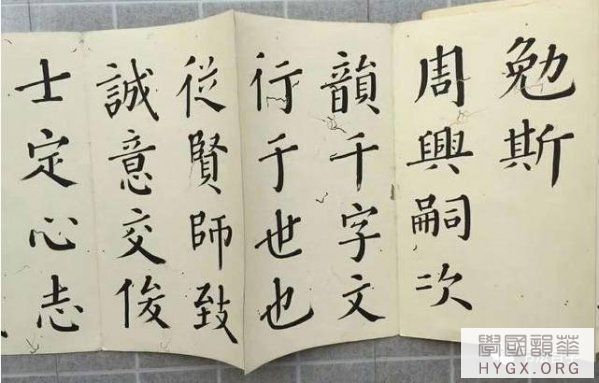 勉斯
周興嗣次
韻千字文
行于世也
從賢師致
誠意交俊
士定心志
華韻國學
HYGX.ORG